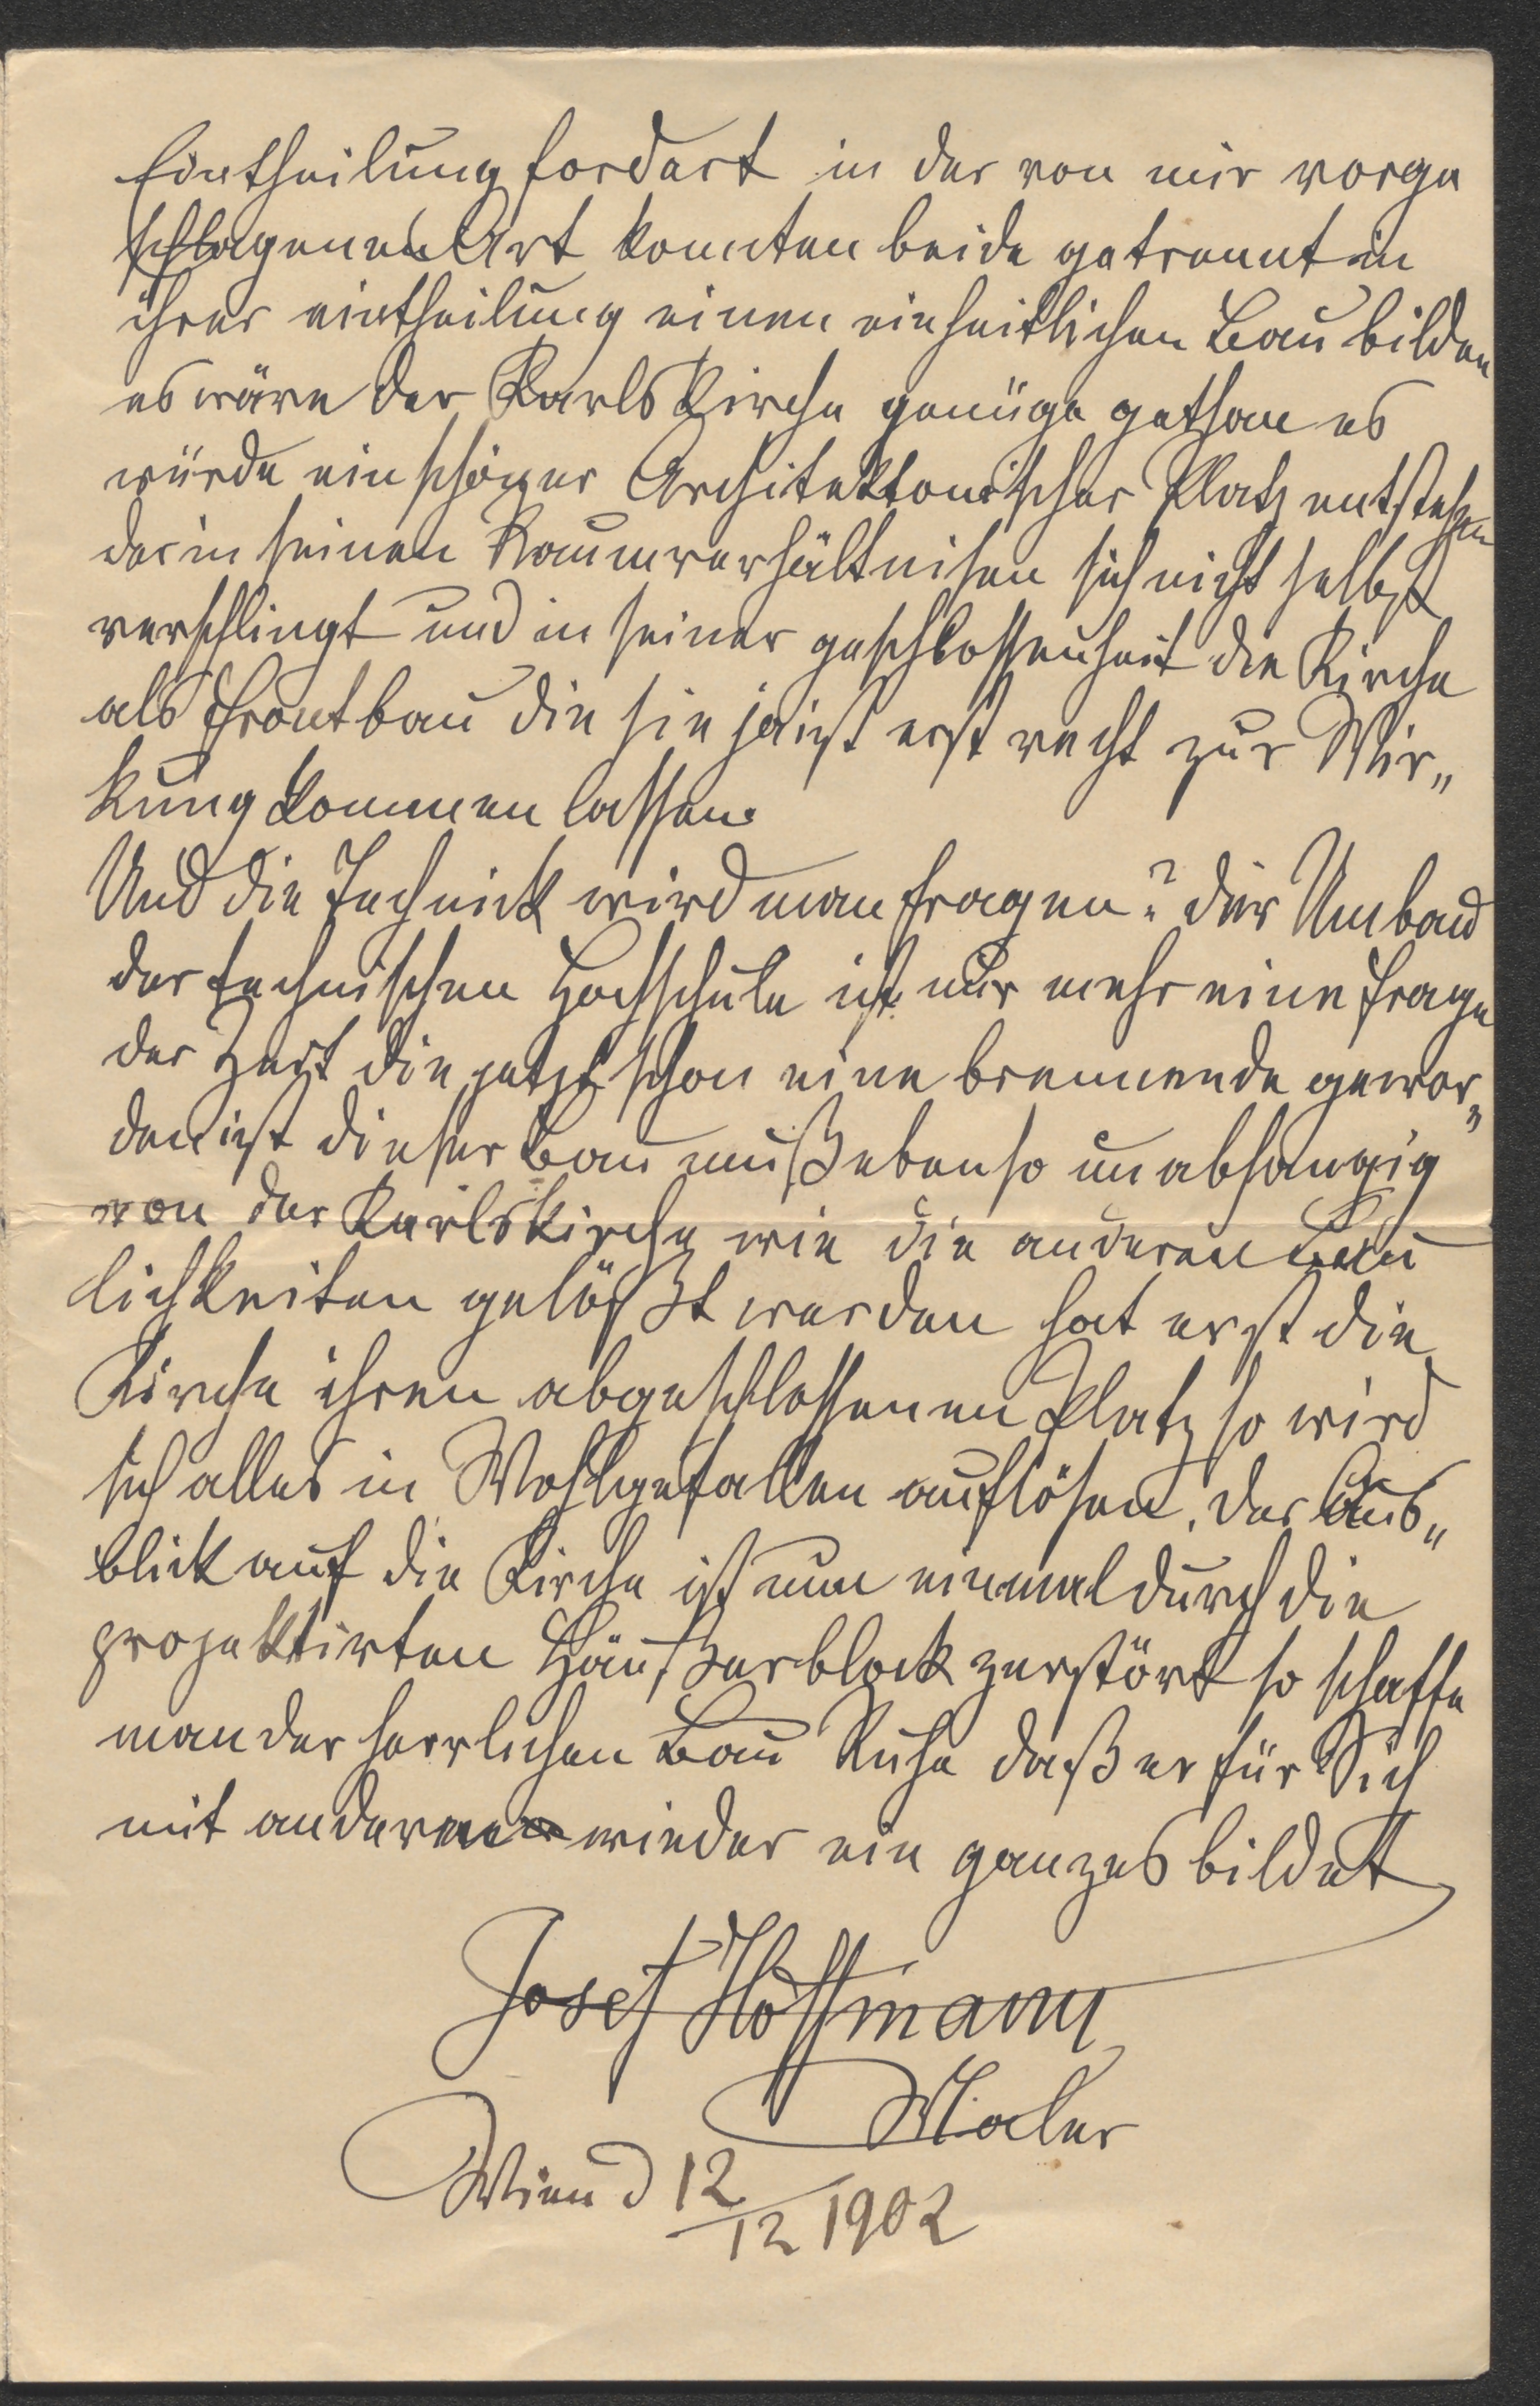 Eintheilung fordert in der von mir vorge
schlagenen Art konnten beide getrennt in
ihrer eintheilung einen einheitlichen Bau bilden
es wäre der Karls Kirche genüge gethan es
würde ein schöner Architektonischer Platz entstehen
der in seinen Raumverhältnisen sich nicht selbst
verschlingt und in seiner geschlossenheit die Kirche
als Frontbau die sie ja ist erst recht zur Wir„
kung kommen lassen.
Und die Technick wird man fragen? der Umbau
der technischen Hochschule ist nur mehr eine frage
der Zeit die jetzt schon eine brennende gewor„
den ist dieser Bau muß ebenso unabhangig
von der Karlskirche wie die anderen Bau
lichkeiten gelößt werden hat erst die
Kirche ihren abgeschlossenen Platz so wird
sich alles in Wohlgefallen auflösen. der Aus„
blick auf die Kirche ist nun einmal durch die
projektirten Häußerblock zerstört so schaffe
man der herrlichen Bau Ruhe daß er für Sich
mit anderen wieder ein ganzes bildet
Josef Hoffmann
Maler
Wien d 12/12 1902